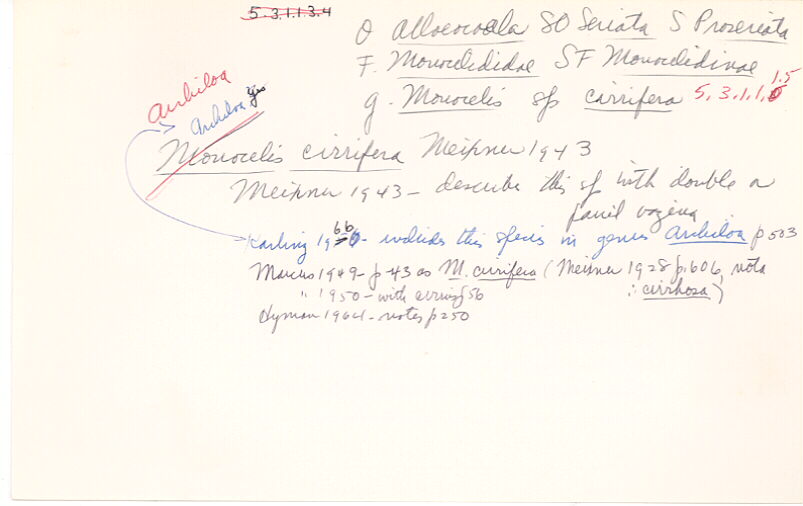 5.3.1.1.3.4
O Alloeocoela SO Seriata S Proseriata
F. Monocelididae SF Monocelidinae
g. Monocelis sp cirrifera 5.3.1.1.1.5
Archiloa
Archiloa yes
Monocelis cirrifera Meixner 1943
Meixner 1943 - describe this sp with double a
vagina
Karling 1966 - includes this species in genus Archiloa p 503
Marcus 1949 - p 43 as M. cirrifera (Meixner 1928 p. 606, nota
" 1950 - with
: cirrhosa)
Hyman 1964 - notes p 250